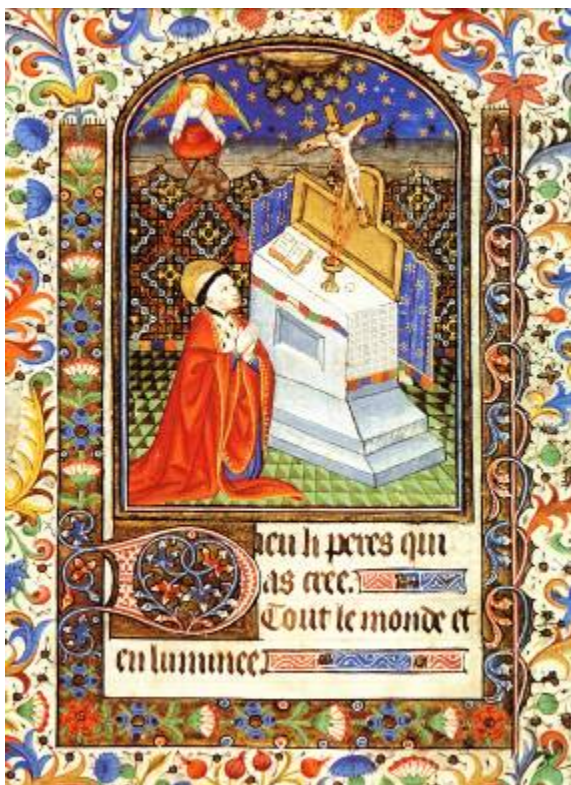 Dieu li peres qui
as cree.
Tout le monde et
enluminee